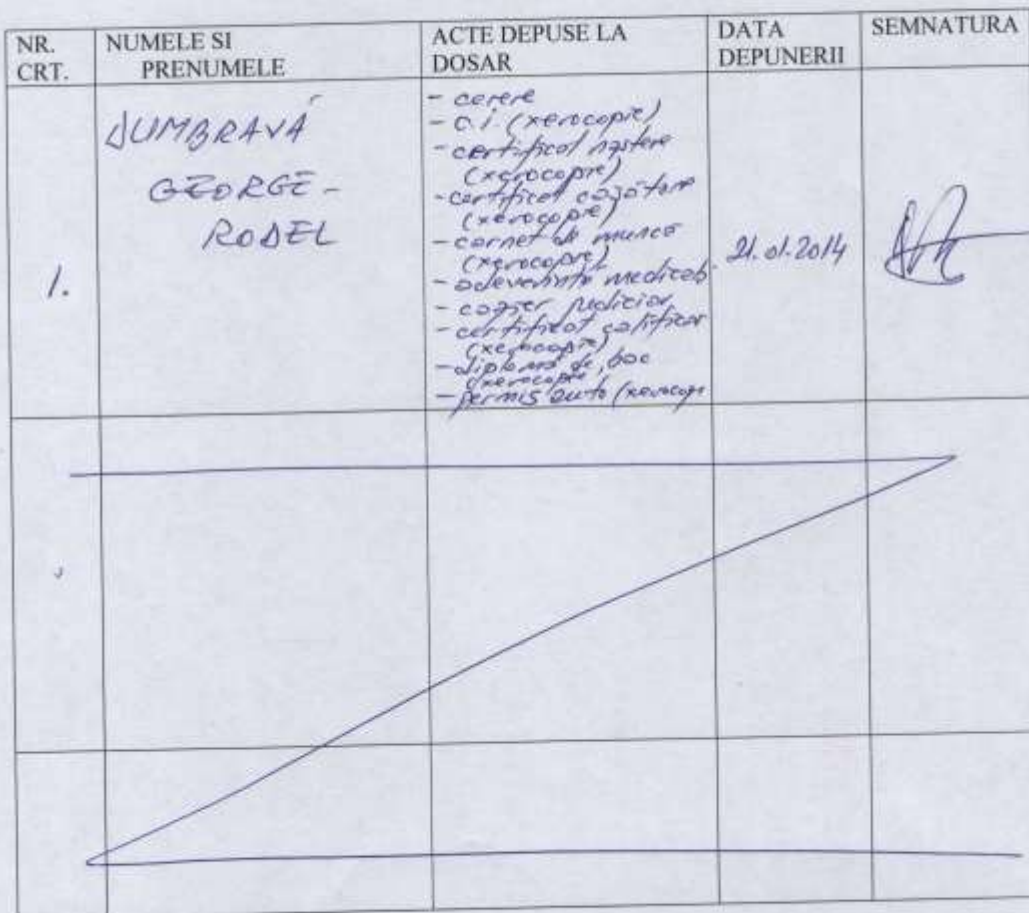 NR.
CRT.
NUMELE SI
PRENUMELE
ACTE DEPUSE LA
DOSAR
DATA
DEPUNERII
SEMNATURA
1.
DUMBRAVĂ
GEORGE-
RODEL
- cerere
- c.i. (xerocopie)
- certificat naștere
(xerocopie)
- certificat căsătorie
(xerocopie)
- carnet de muncă
(xerocopie)
- adeverință medicală
- cazier judiciar
- certificat calificare
(xerocopie)
- diplomă de bac
(xerocopie)
- permis auto (xerocopi
21.01.2014